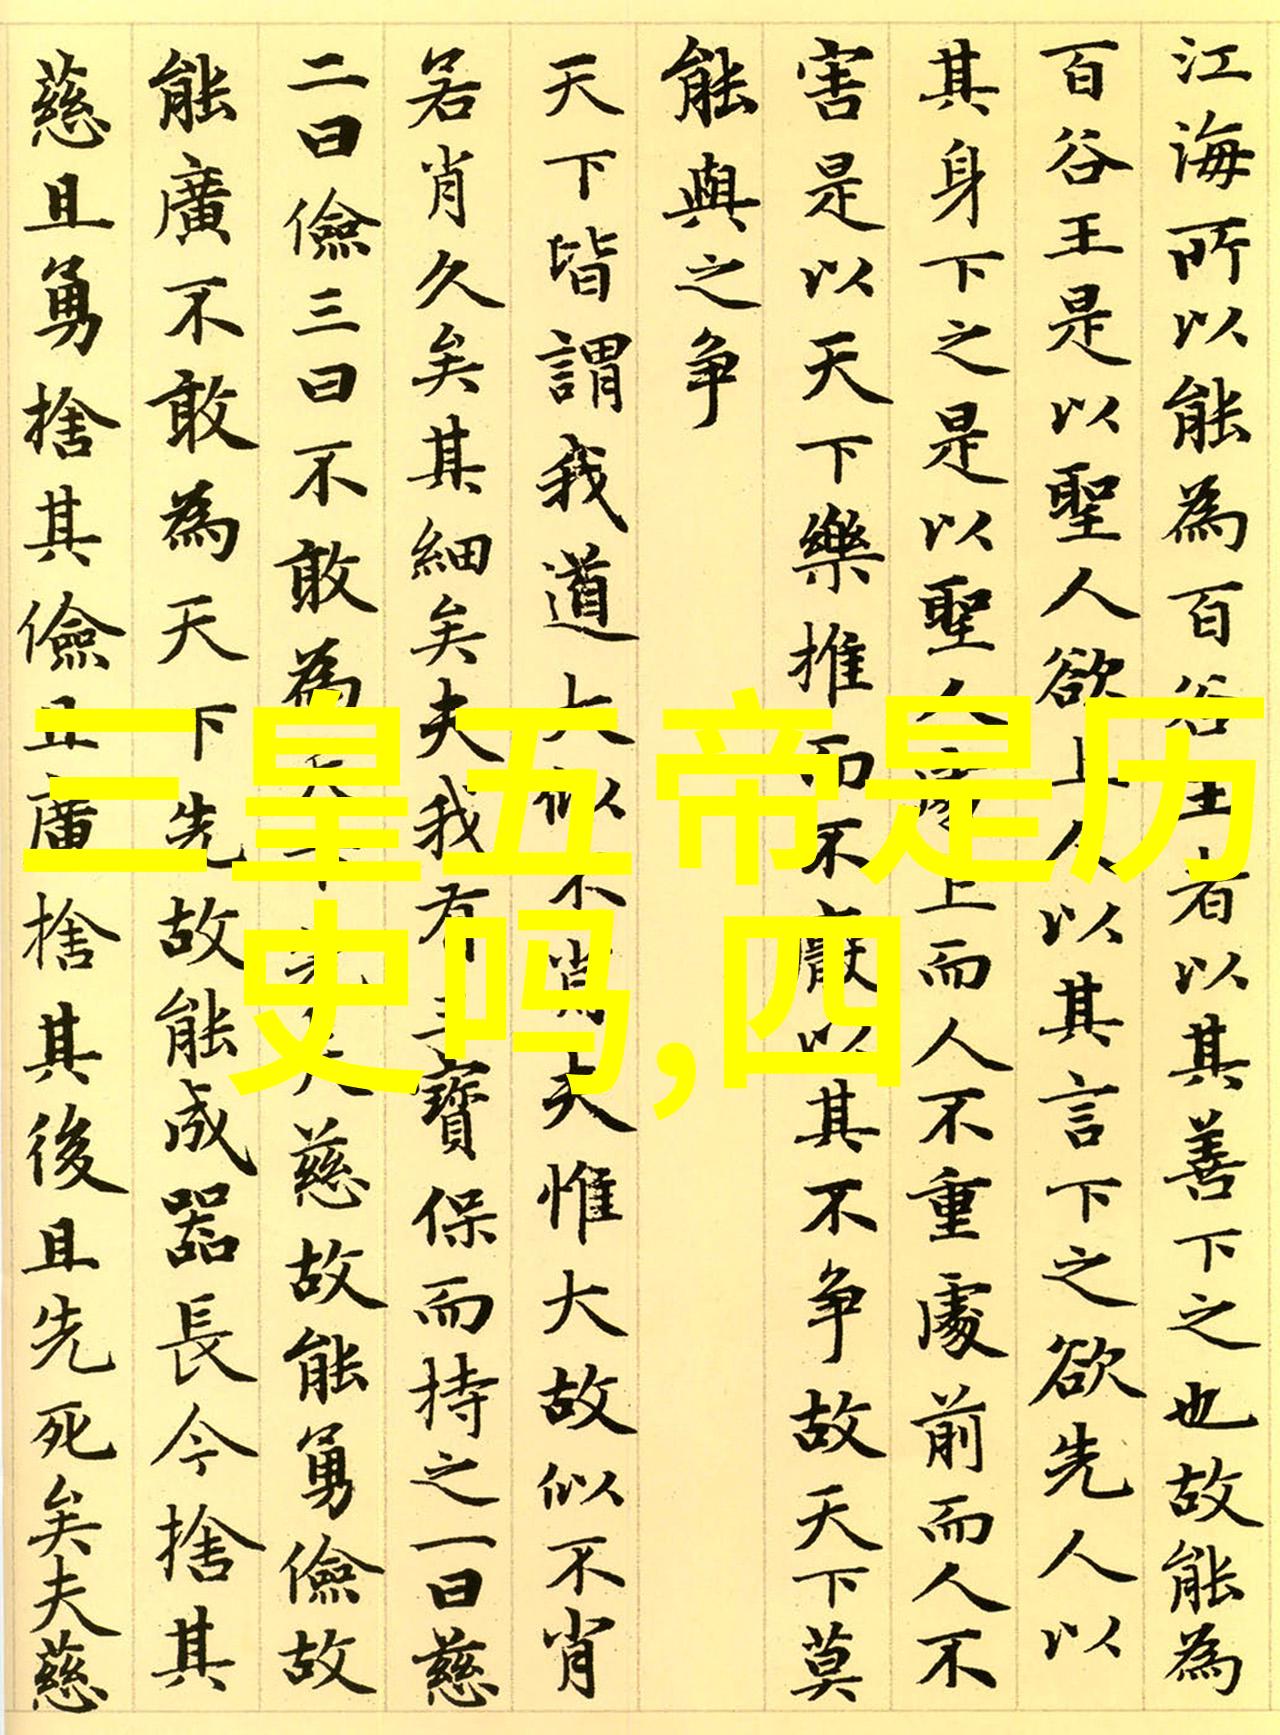 江海所以能為百谷王者以其善下之也故能為
百谷王是以聖人欲上人以其言下之欲先人以
其身下之是以聖人處上而人不重處前而人不
害是以天下樂推而不厭以其不爭故天下莫
能與之爭
天下皆謂我道大似不肖夫惟大故似不肖
若肖久矣其細矣夫我有三寶保而持之一曰慈
二曰儉三曰不敢為天下先夫慈故能勇儉故
能廣不敢為天下先故能成器長今捨其
慈且勇捨其儉且廣捨其後且先死矣夫慈
三皇五帝是历
史吗,四